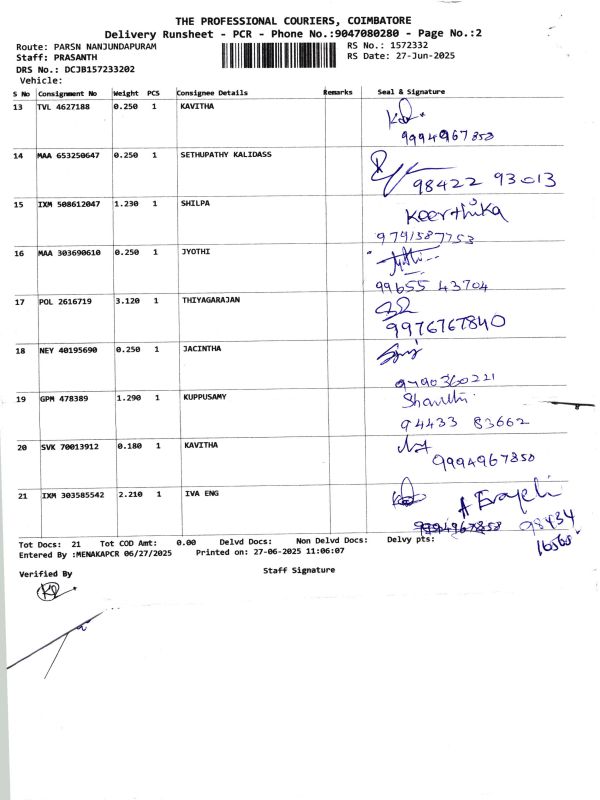 THE PROFESSIONAL COURIERS, COIMBATORE
Delivery Runsheet - PCR - Phone No.:9047080280 - Page No.:2
Route: PARSN NANJUNDAPURAM RS No.: 1572332
Staff: PRASANTH RS Date: 27-Jun-2025
DRS No.: DCJB157233202
Vehicle:
S No Consignment No Weight PCS Consignee Details Remarks Seal & Signature
13 TVL 4627188 0.250 1 KAVITHA
9994967850
14 MAA 653250647 0.250 1 SETHUPATHY KALIDASS
98422 93013
15 IXM 508612047 1.230 1 SHILPA
Keerthika
9791587753
16 MAA 303690610 0.250 1 JYOTHI
Jyothi
99655 43704
17 POL 2616719 3.120 1 THIYAGARAJAN
9976767840
18 NEY 40195690 0.250 1 JACINTHA
9790360221
19 GPM 478389 1.290 1 KUPPUSAMY
94433 83662
20 SVK 70013912 0.180 1 KAVITHA
9994967850
21 IXM 303585542 2.210 1 IVA ENG
98434
16565
Tot Docs: 21 Tot COD Amt: 0.00 Delvd Docs: Non Delvd Docs: Delvy pts:
Entered By :MENAKAPCR 06/27/2025 Printed on: 27-06-2025 11:06:07
Verified By Staff Signature